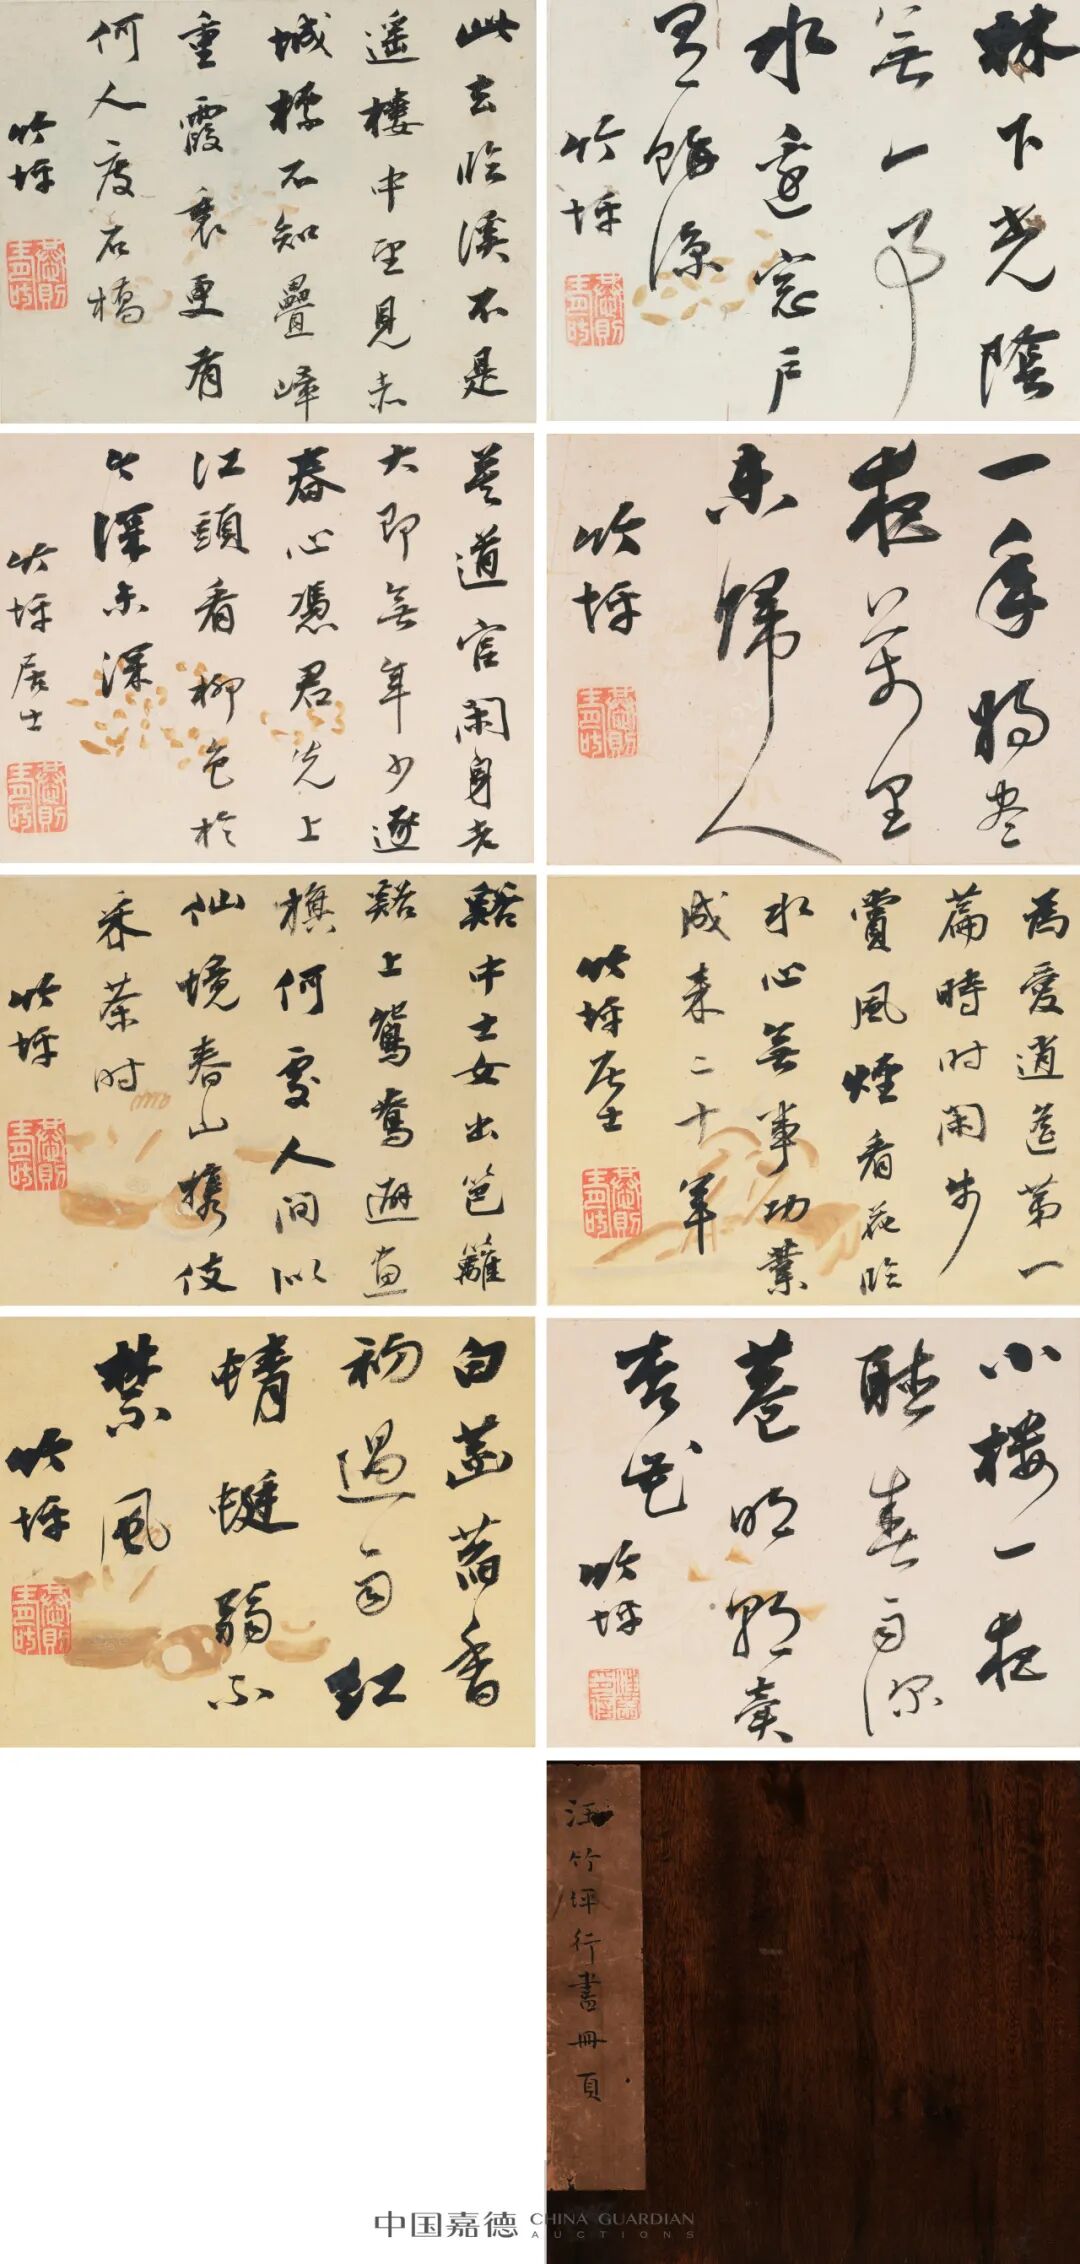 林下光陰
無一事
水邊窗戶
餘涼
竹坪
此去臨溪不是
遙樓中望見赤
城標不知疊嶂
重霞裏更有
何人度石橋
竹坪
一年將盡
夜萬里
未歸人
竹坪
莫道官閑身老
大即無年少逐
春心憑君先上
江頭看柳色於
深未深
竹坪居士
為愛逍遙第一
篇時時閑步
賞風煙看花臨
水心無事功業
成來二十年
竹坪居士
谿中士女出笆籬
谿上鴛鴦避畫
旗何處人間似
仙境春山攜伎
采茶時
竹坪
小樓一夜
聽春雨深
巷明朝賣
杏花
竹坪
白菡萏香
初過雨紅
蜻蜓弱不
禁風
竹坪
汪竹坪行書冊頁
中国嘉德 CHINA GUARDIAN
AUCTIONS